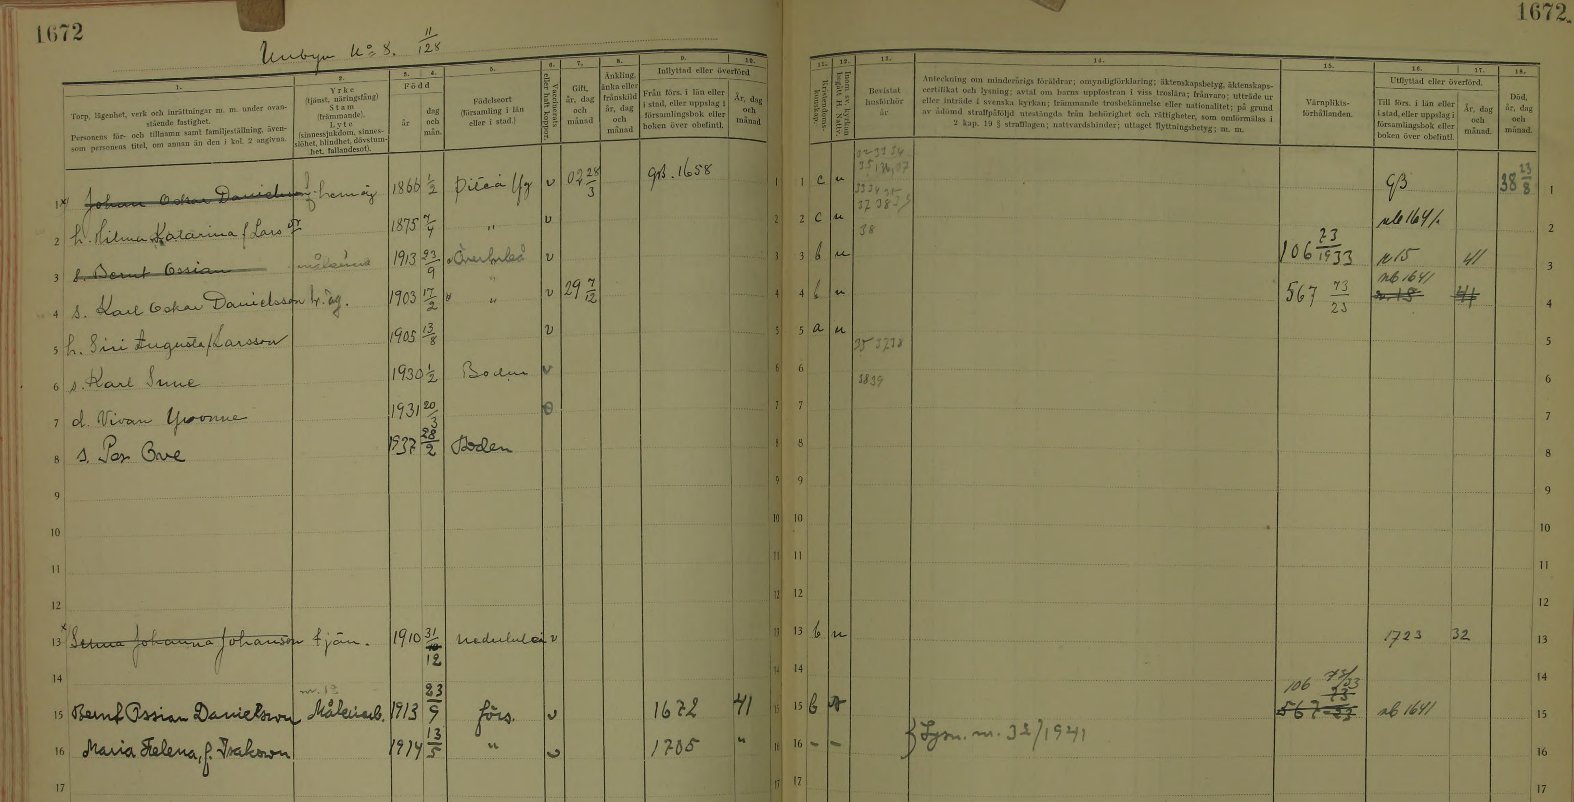 1672
1672.
Unbyn No 8. 11/128
1.
Torp, lägenhet, verk och inrättningar m. m. under ovan-
stående fastighet.
Personens för- och tillnamn samt familjeställning, även-
som personens titel, om annan än den i kol. 2 angivna.
2.
Yrke
(tjänst, näringsfång)
Stam
(främmande).
Lyte
(sinnessjukdom, sinnes-
slöhet, blindhet, dövstum-
het, fallandesot).
3. 4.
Född
år
dag
och
mån.
5.
Födelseort
(församling i län
eller i stad.)
6.
Vaccinerats
eller haft koppor.
7.
Gift,
år, dag
och
månad
8.
Änkling,
änka eller
frånskild
år, dag
och
månad
9. 10.
Inflyttad eller överförd
Från förs. i län eller
i stad, eller uppslag i
församlingsbok eller
boken över obefintl.
År, dag
och
månad
11.
Kristendoms-
kunskap.
12.
Inom sv. kyrkan
begått H. Nattv.
13.
Bevistat
husförhör
år
14.
Anteckning om minderårigs föräldrar; omyndigförklaring; äktenskapsbetyg, äktenskaps-
certifikat och lysning; avtal om barns uppfostran i viss troslära; frånvaro; utträde ur
eller inträde i svenska kyrkan; främmande trosbekännelse eller nationalitet; på grund
av ådömd straffpåföljd utestängda från behörighet och rättigheter, som omförmälas i
2 kap. 19 § strafflagen; nattvardshinder; uttaget flyttningsbetyg; m. m.
15.
Värnplikts-
förhållanden.
16. 17.
Utflyttad eller överförd.
Till förs. i län eller
i stad, eller uppslag i
församlingsbok eller
boken över obefintl.
År, dag
och
månad.
18.
Död,
år, dag
och
månad.
1 Johan Oskar Danielsson f. hemäg 1866 1/2 Piteå lfg v 02 28/3 gß. 1658 1 1 c u gß 38 23/8 1
2 h. Hilma Katarina f. Lars 1875 7/4 " v 2 2 c u 38 nb 1641 2
3 s. Bernt Ossian 1913 23/9 Överluleå v 3 3 b u 106 73/1933 n 15 41 3
4 s. Karl Oskar Danielsson h.äg. 1903 17/2 " v 29 7/12 4 4 b u 567 73/23 nb 1641 n. 15 41 4
5 h. Siri Augusta f. Larsson 1905 13/8 v 5 5 a u 35 37 38 5
6 s. Karl Sune 1930 1/2 Boden v 6 6 38 39 6
7 d. Vivan Yvonne 1931 20/3 7 7 7
8 s. Per Ove 1937 28/2 Boden 8 8 8
9 9 9 9
10 10 10 10
11 11 11 11
12 12 12 12
13 Senna Johanna Johansson tjän. 1910 31/12 Nederluleå v 13 b u 1723 32 13
14 14 14 14
15 Bernt Ossian Danielsson Måleriarb. 1913 23/9 förs. v 1672 41 15 15 b 106 73/33 567 73/23 nb 1641 15
16 Maria Helena, f. Isaksson 1914 13/5 " v 1705 " 16 16 - - } Lysn. nr. 32/1941 16
17 17 17 17